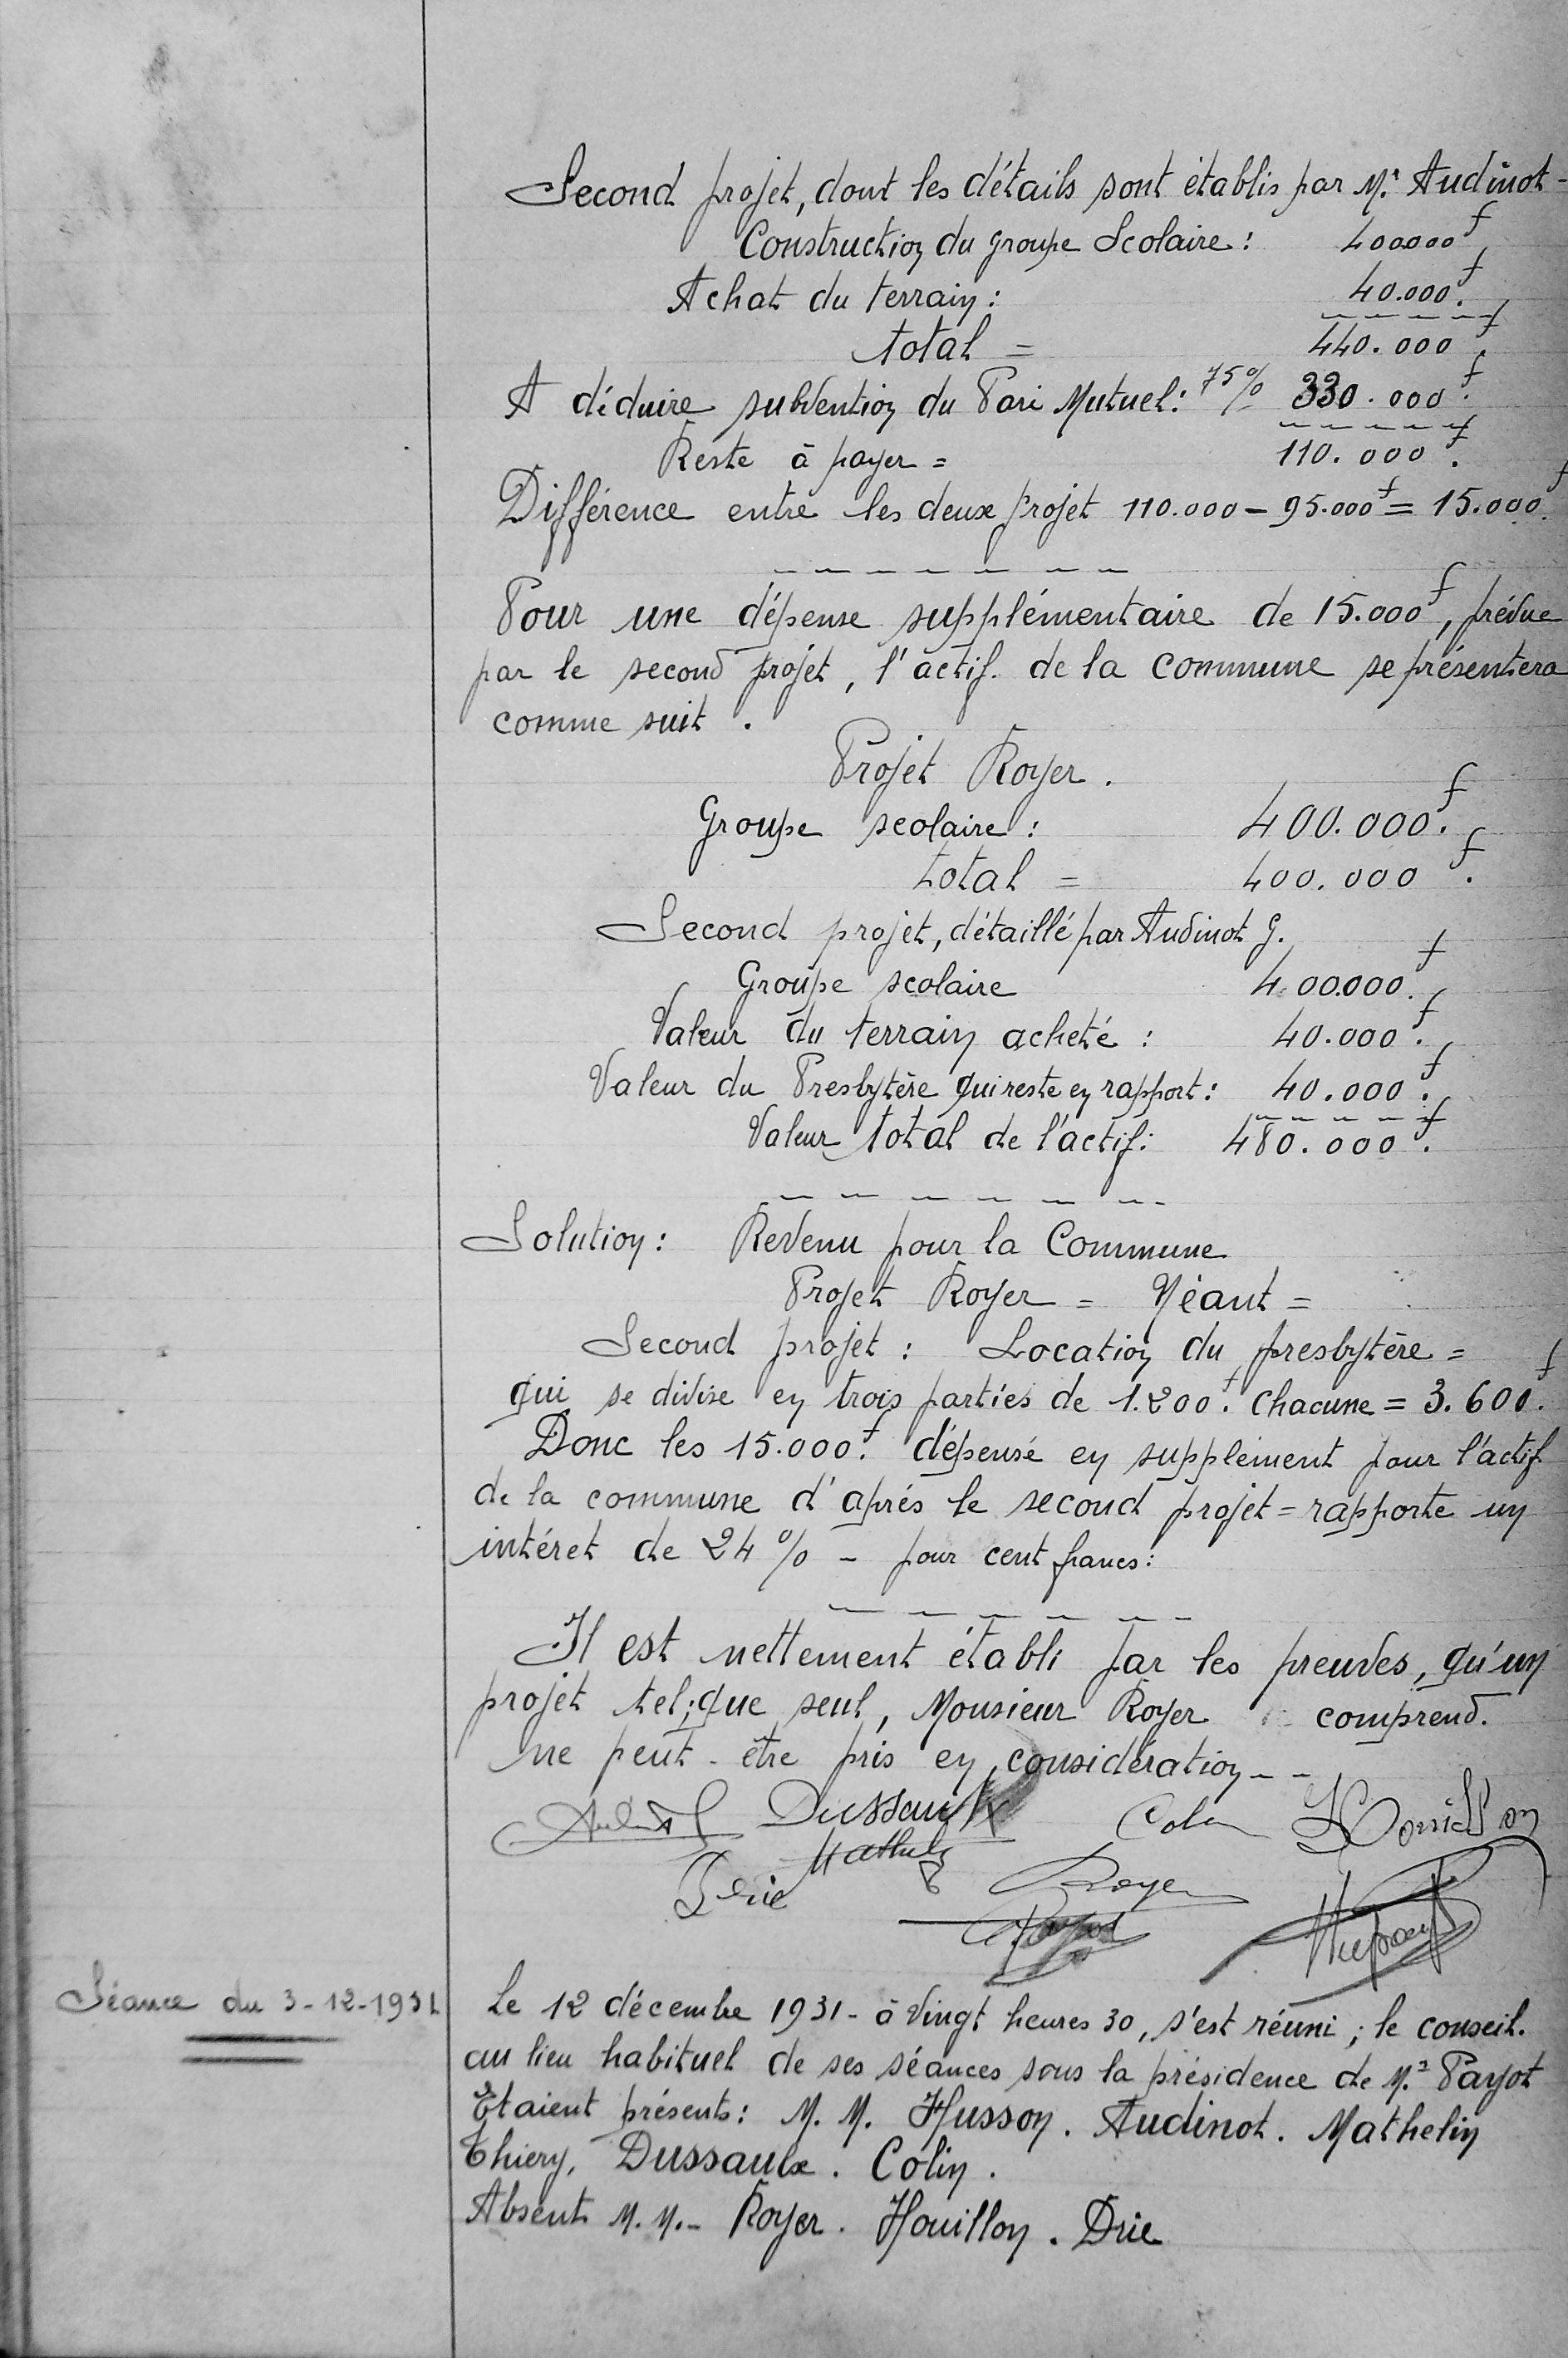 Second projet, dont les détails sont établis par Mr Audinot -
Construction du groupe Scolaire : 400000f
Achat du terrain : 40.000f.
total = 440.000f.
A déduire subvention du Pari Mutuel : 75% 330.000f.
Reste à payer = 110.000f.
Différence entre les deux projet 110.000 - 95.000f = 15.000f.
Pour une dépense supplémentaire de 15.000f, prévue
par le second projet, l'actif. de la commune se présentera
comme suit .
Projet Royer.
Groupe scolaire : 400.000f.
total = 400.000f.
Second projet, détaillé par Audinot G.
Groupe scolaire 400.000f.
Valeur du terrain acheté : 40.000f.
Valeur du Presbytère qui reste en rapport : 40.000f.
Valeur total de l'actif : 480.000f.
Solution : Revenu pour la Commune
Projet Royer = Néant =
Second projet : Location du presbytère =
qui se divise en trois parties de 1.200f. chacune = 3.600f.
Donc les 15.000f. dépensé en supplément pour l'actif
de la commune d'après le second projet = rapporte un
intéret de 24% - pour cent francs :
Il est nettement établi par les preuves, qu'un
projet tel ; que seul, Monsieur Royer comprend.
ne peut-être pris en considération - -
Dussaulx Colin
Mathelin
Drie Royer
Séance du 3-12-1931
Le 12 décembre 1931 - à vingt heures 30, s'est réuni ; le conseil.
au lieu habituel de ses séances sous la présidence de Mr Payot
Etaient présents : M. M. Husson. Audinot. Mathelin
Thiery, Dussaulx. Colin.
Absent M. M. - Royer. Houillon. Drie